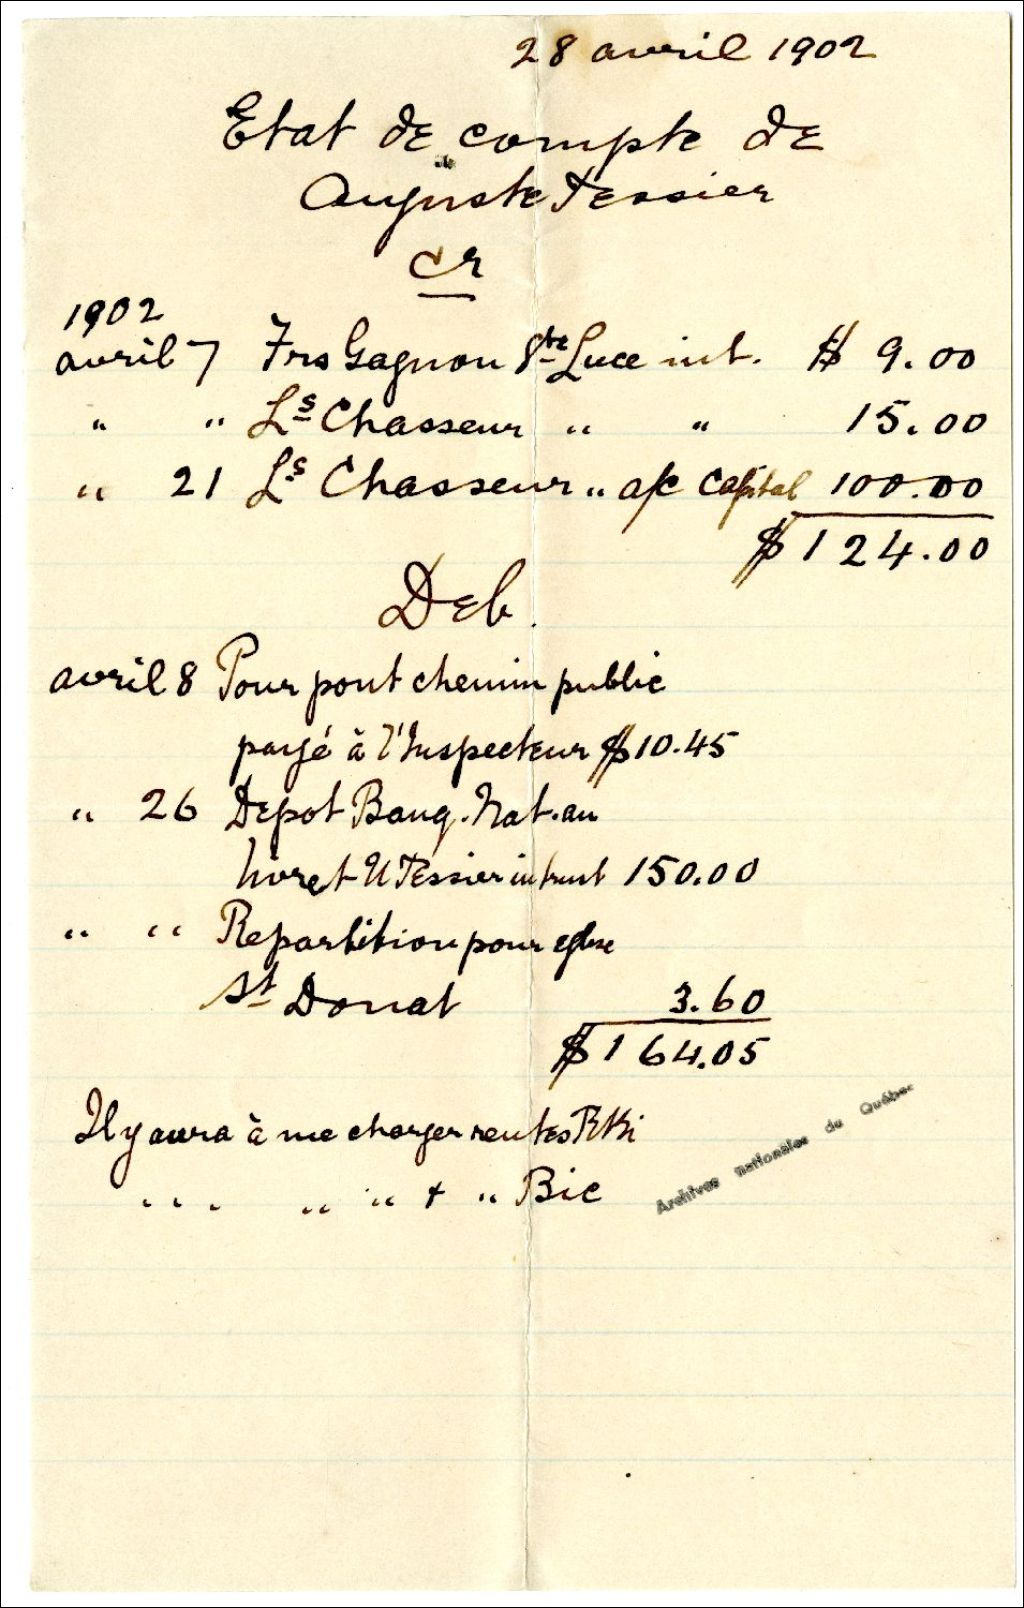 28 avril 1902
Etat de compte de
Auguste Tessier
Cr
1902
avril 7 Frs Gagnon Ste Luce int. $ 9.00
" " Ls Chasseur " " 15.00
" 21 Ls Chasseur " a/c Capital 100.00
$ 124.00
Deb.
avril 8 Pour pont chemin public
payé à l'Inspecteur $10.45
" 26 Depot Banq. Nat. au
livret U Tessier in trust 150.00
" " Repartition pour eglise
St Donat 3.60
$ 164.05
Il y aura à me charger rentes Rki
" " " " " + " Bic
Archives nationales du Québec